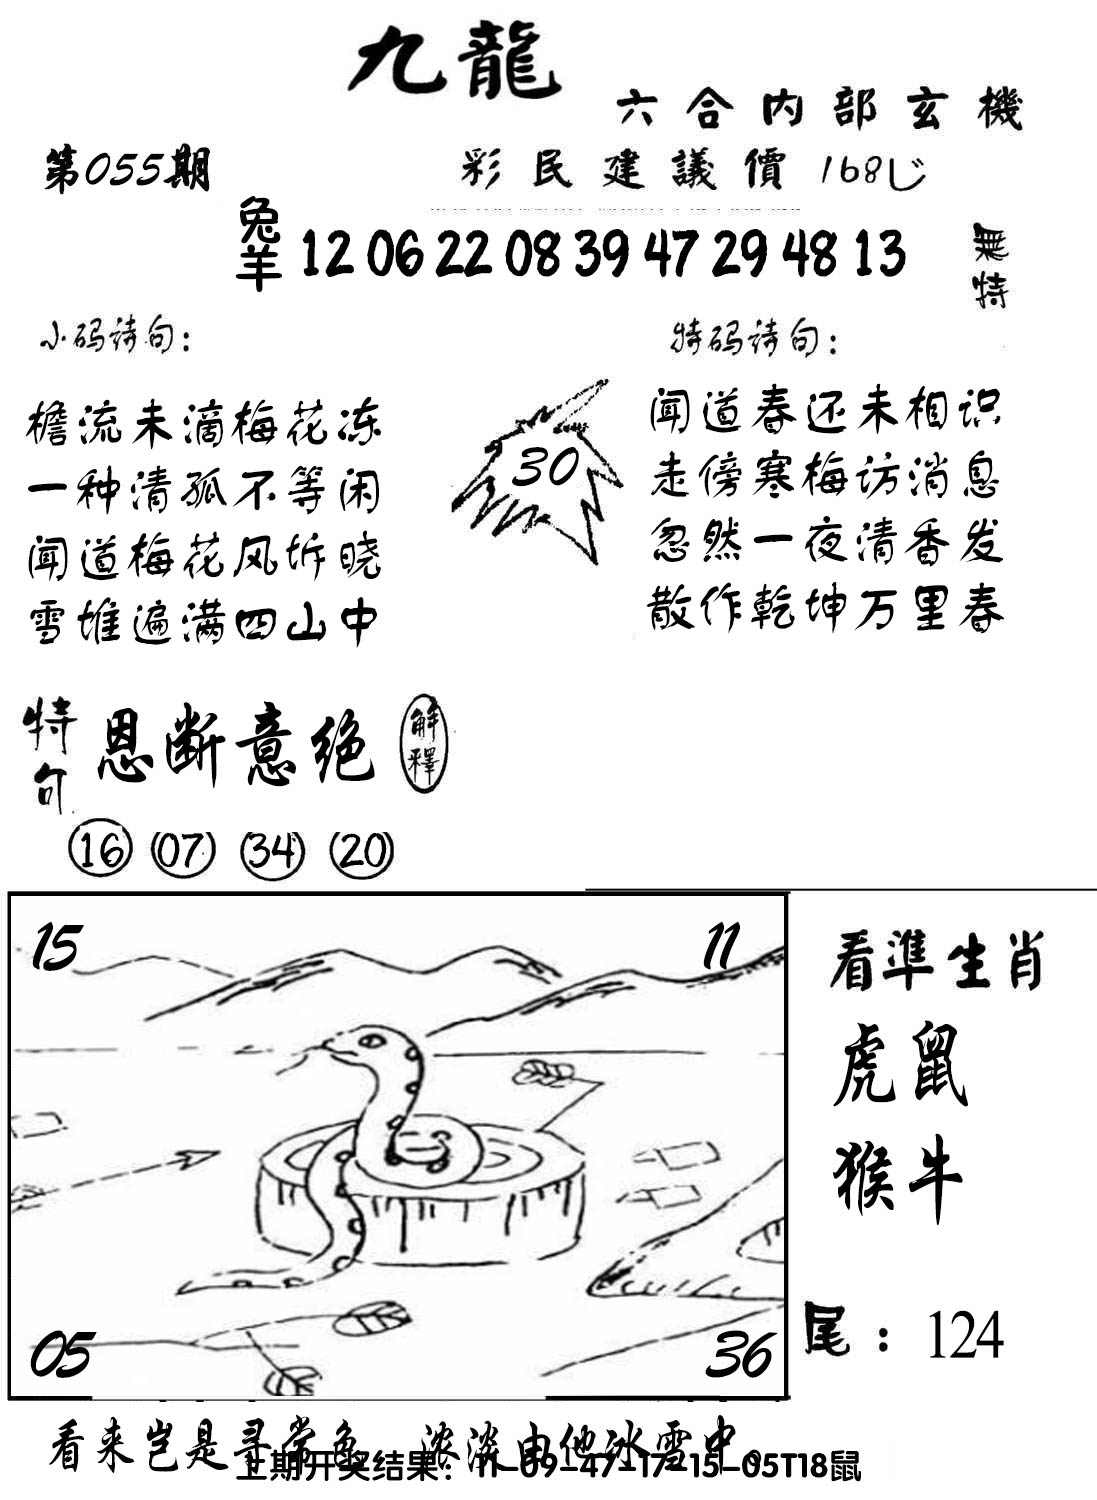 九龍
六合内部玄機
第055期
彩民建議價 168
兔羊 12 06 22 08 39 47 29 48 13
無特
小码诗句：
檐流未滴梅花冻
一种清孤不等闲
闻道梅花风坼晓
雪堆遍满四山中
30
特码诗句：
闻道春还未相识
走傍寒梅访消息
忽然一夜清香发
散作乾坤万里春
特句 恩断意绝 解釋
16 07 34 20
15 11
05 36
看準生肖
虎鼠
猴牛
尾：124
看来岂是寻常色 浓淡由他冰雪中
上期开奖结果：11-09-47-17-15-05T18鼠